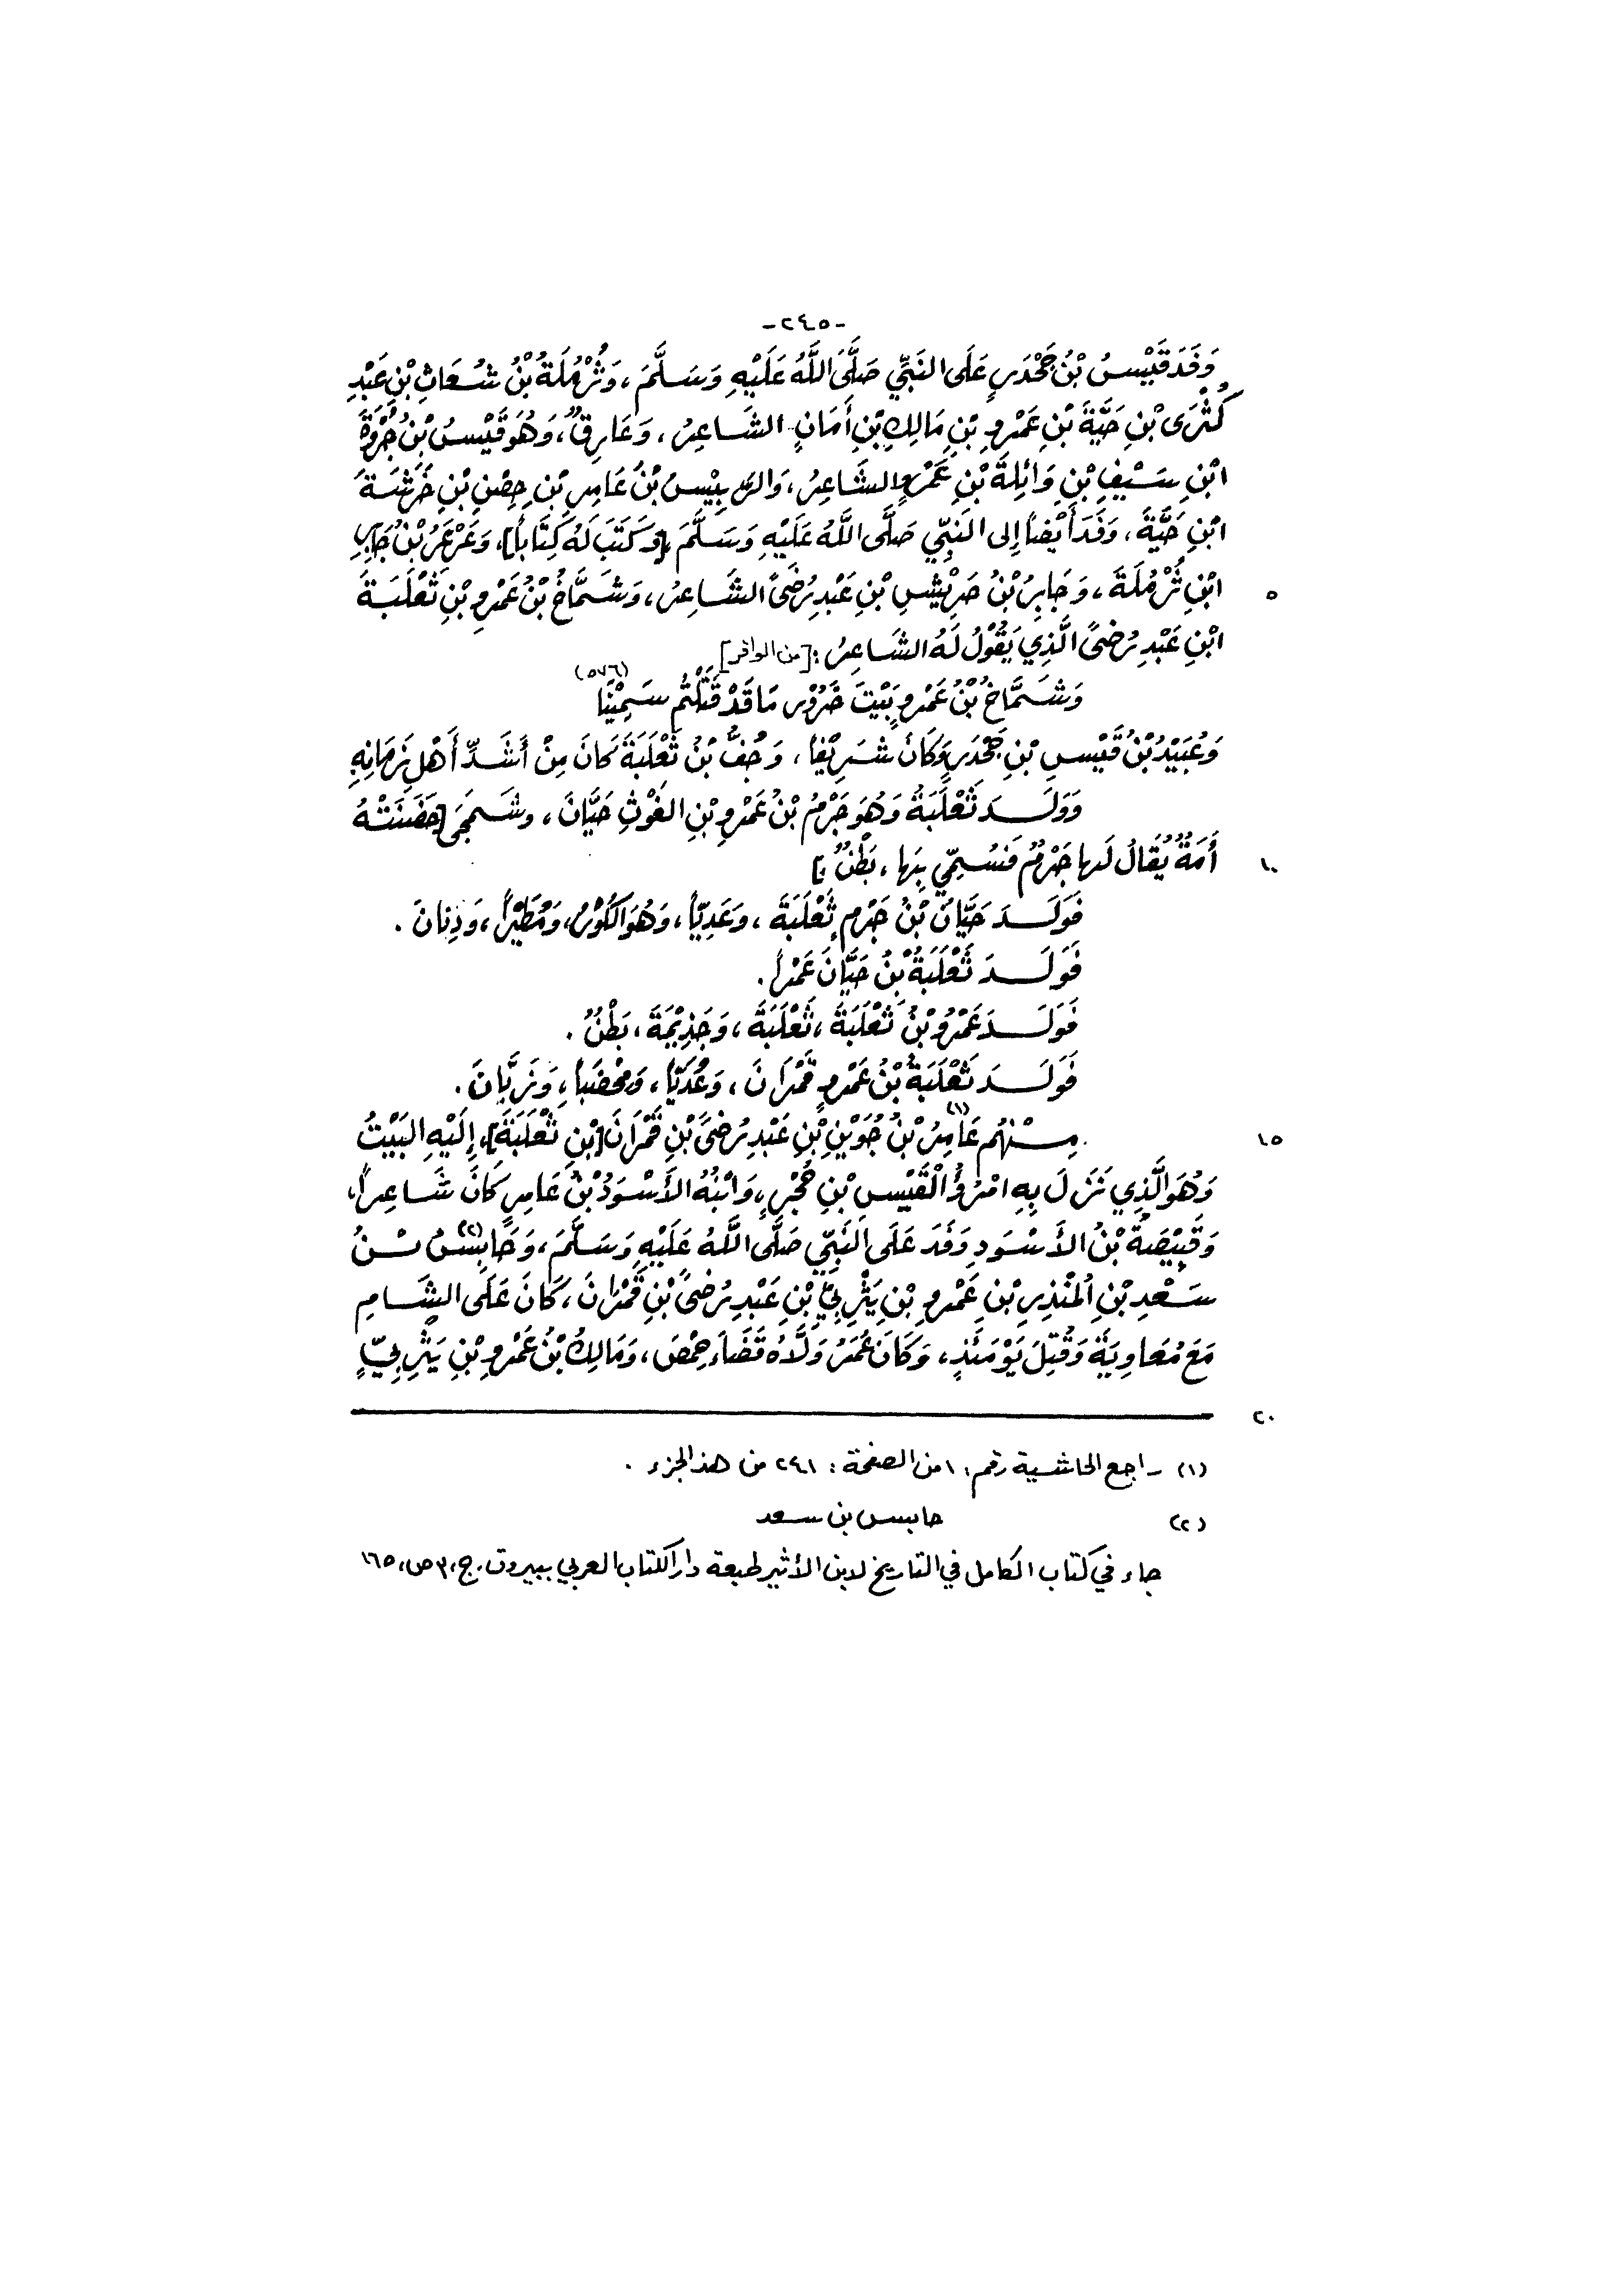 -٢٤٥-
وَفَدَ قَيْسُ بْنُ جَحْدَرٍ عَلَى النَّبِيِّ صَلَّى اللَّهُ عَلَيْهِ وَسَلَّمَ، وَثُرْمُلَةُ بْنُ شُعَاثِ بْنِ عَبْدِ
كُثْرَى بْنِ حَيَّةَ بْنِ عَمْرِو بْنِ مَالِكِ بْنِ أَمَانٍ الشَّاعِرُ، وَعَارِقٌ، وَهُوَ قَيْسُ بْنُ جُرْوَةَ
ابْنِ سَيْفِ بْنِ وَائِلَةَ بْنِ عَمْرٍو الشَّاعِرُ، وَالرَّبِيْسُ بْنُ عَامِرِ بْنِ حِصْنِ بْنِ خَرَشَةَ
ابْنِ حَيَّةَ، وَفَدَ أَيْضاً إِلى النَّبِيِّ صَلَّى اللَّهُ عَلَيْهِ وَسَلَّمَ [وَكَتَبَ لَهُ كِتَاباً]، وَعَرْعَرُ بْنُ جَابِرِ
ابْنِ ثُرْمُلَةَ، وَجَابِرُ بْنُ حَرِيْشِ بْنِ عَبْدِ رُضَىً الشَّاعِرُ، وَشَمَّاخُ بْنُ عَمْرِو بْنِ ثَعْلَبَةَ
٥
ابْنِ عَبْدِ رُضىً الَّذِي يَقُوْلُ لَهُ الشَّاعِرُ: [من الوافر]
وَشَمَّاخُ بْنُ عَمْرٍو بَيْتَ خَرُوْسٍ مَا قَدْ قَتَلْتُمْ سَمِيْنَا (٥٧٦)
وَعُبَيْدُ بْنُ قَيْسِ بْنِ جَحْدَرٍ وَكَانَ شَرِيْفاً، وَجُفُّ بْنُ ثَعْلَبَةَ كَانَ مِنْ أَشَدِّ أَهْلِ زَمَانِهِ
وَوَلَدَ ثَعْلَبَةُ وَهُوَ جَرْمُ بْنُ عَمْرِو بْنِ الغَوْثِ حَيَّانَ، وشَمَجَى [حَضَنَتْهُ
أَمَةٌ يُقَالُ لَها جَرْمٌ فَسُمِّيَ بِهَا، بَطْنٌ]
١٠
فَوَلَدَ حَيَّانُ بْنُ جَرْمٍ ثَعْلَبَةَ، وَعَدِيّاً، وَهُوَ الكَوْرُ، وَمُطَيْراً، وَذِنَانَ.
فَوَلَدَ ثَعْلَبَةُ بْنُ حَيَّانَ عَمْراً.
فَوَلَدَ عَمْرُو بْنُ ثَعْلَبَةَ، ثَعْلَبَةَ، وَجَذِيْمَةَ، بَطْنٌ.
فَوَلَدَ ثَعْلَبَةُ بْنُ عَمْرٍو قَمْرَانَ، وَعُدَيّاً، وَمِحْضَباً، وَزَبَّانَ.
مِنْهُم عَامِرُ(١) بْنُ جُوَيْنِ بْنِ عَبْدِ رُضىً بْنِ قَمْرَانَ [بْنِ ثَعْلَبَةَ]، إِلَيْهِ البَيْتُ
١٥
وَهُوَ الَّذِي نَزَلَ بِهِ امْرُؤُ الْقَيْسِ بْنِ حُجْرٍ، وَابْنُهُ الأَسْوَدُ بْنُ عَامِرٍ كَانَ شَاعِراً،
وَقَبِيْصَةُ بْنُ الأَسْوَدِ وَفَدَ عَلَى النَّبِيِّ صَلَّى اللَّهُ عَلَيْهِ وَسَلَّمَ، وَحَابِسُ(٢) بْنُ
سَعْدِ بْنِ المُنْذِرِ بْنِ عَمْرِو بْنِ يَثْرِبِيِّ بْنِ عَبْدِ رُضىً بْنِ قَمْرَانَ، كَانَ عَلَى الشَّامِ
مَعَ مُعَاوِيَةَ وَقُتِلَ يَوْمَئذٍ، وَكَانَ عُمَرُ وَلَّاهُ قَضَاءَ حِمْصَ، وَمَالِكُ بْنُ عَمْرِو بْنِ يَثْرِبِيٍّ
٢٠
(١) راجع الحاشية رقم: ١ من الصفحة: ٢٤١ من هذا الجزء.
(٢) حابس بن سعد
جاء في كتاب الكامل في التاريخ لابن الأثير طبعة دار الكتاب العربي ببيروت. ج، ٣ ص، ١٦٥